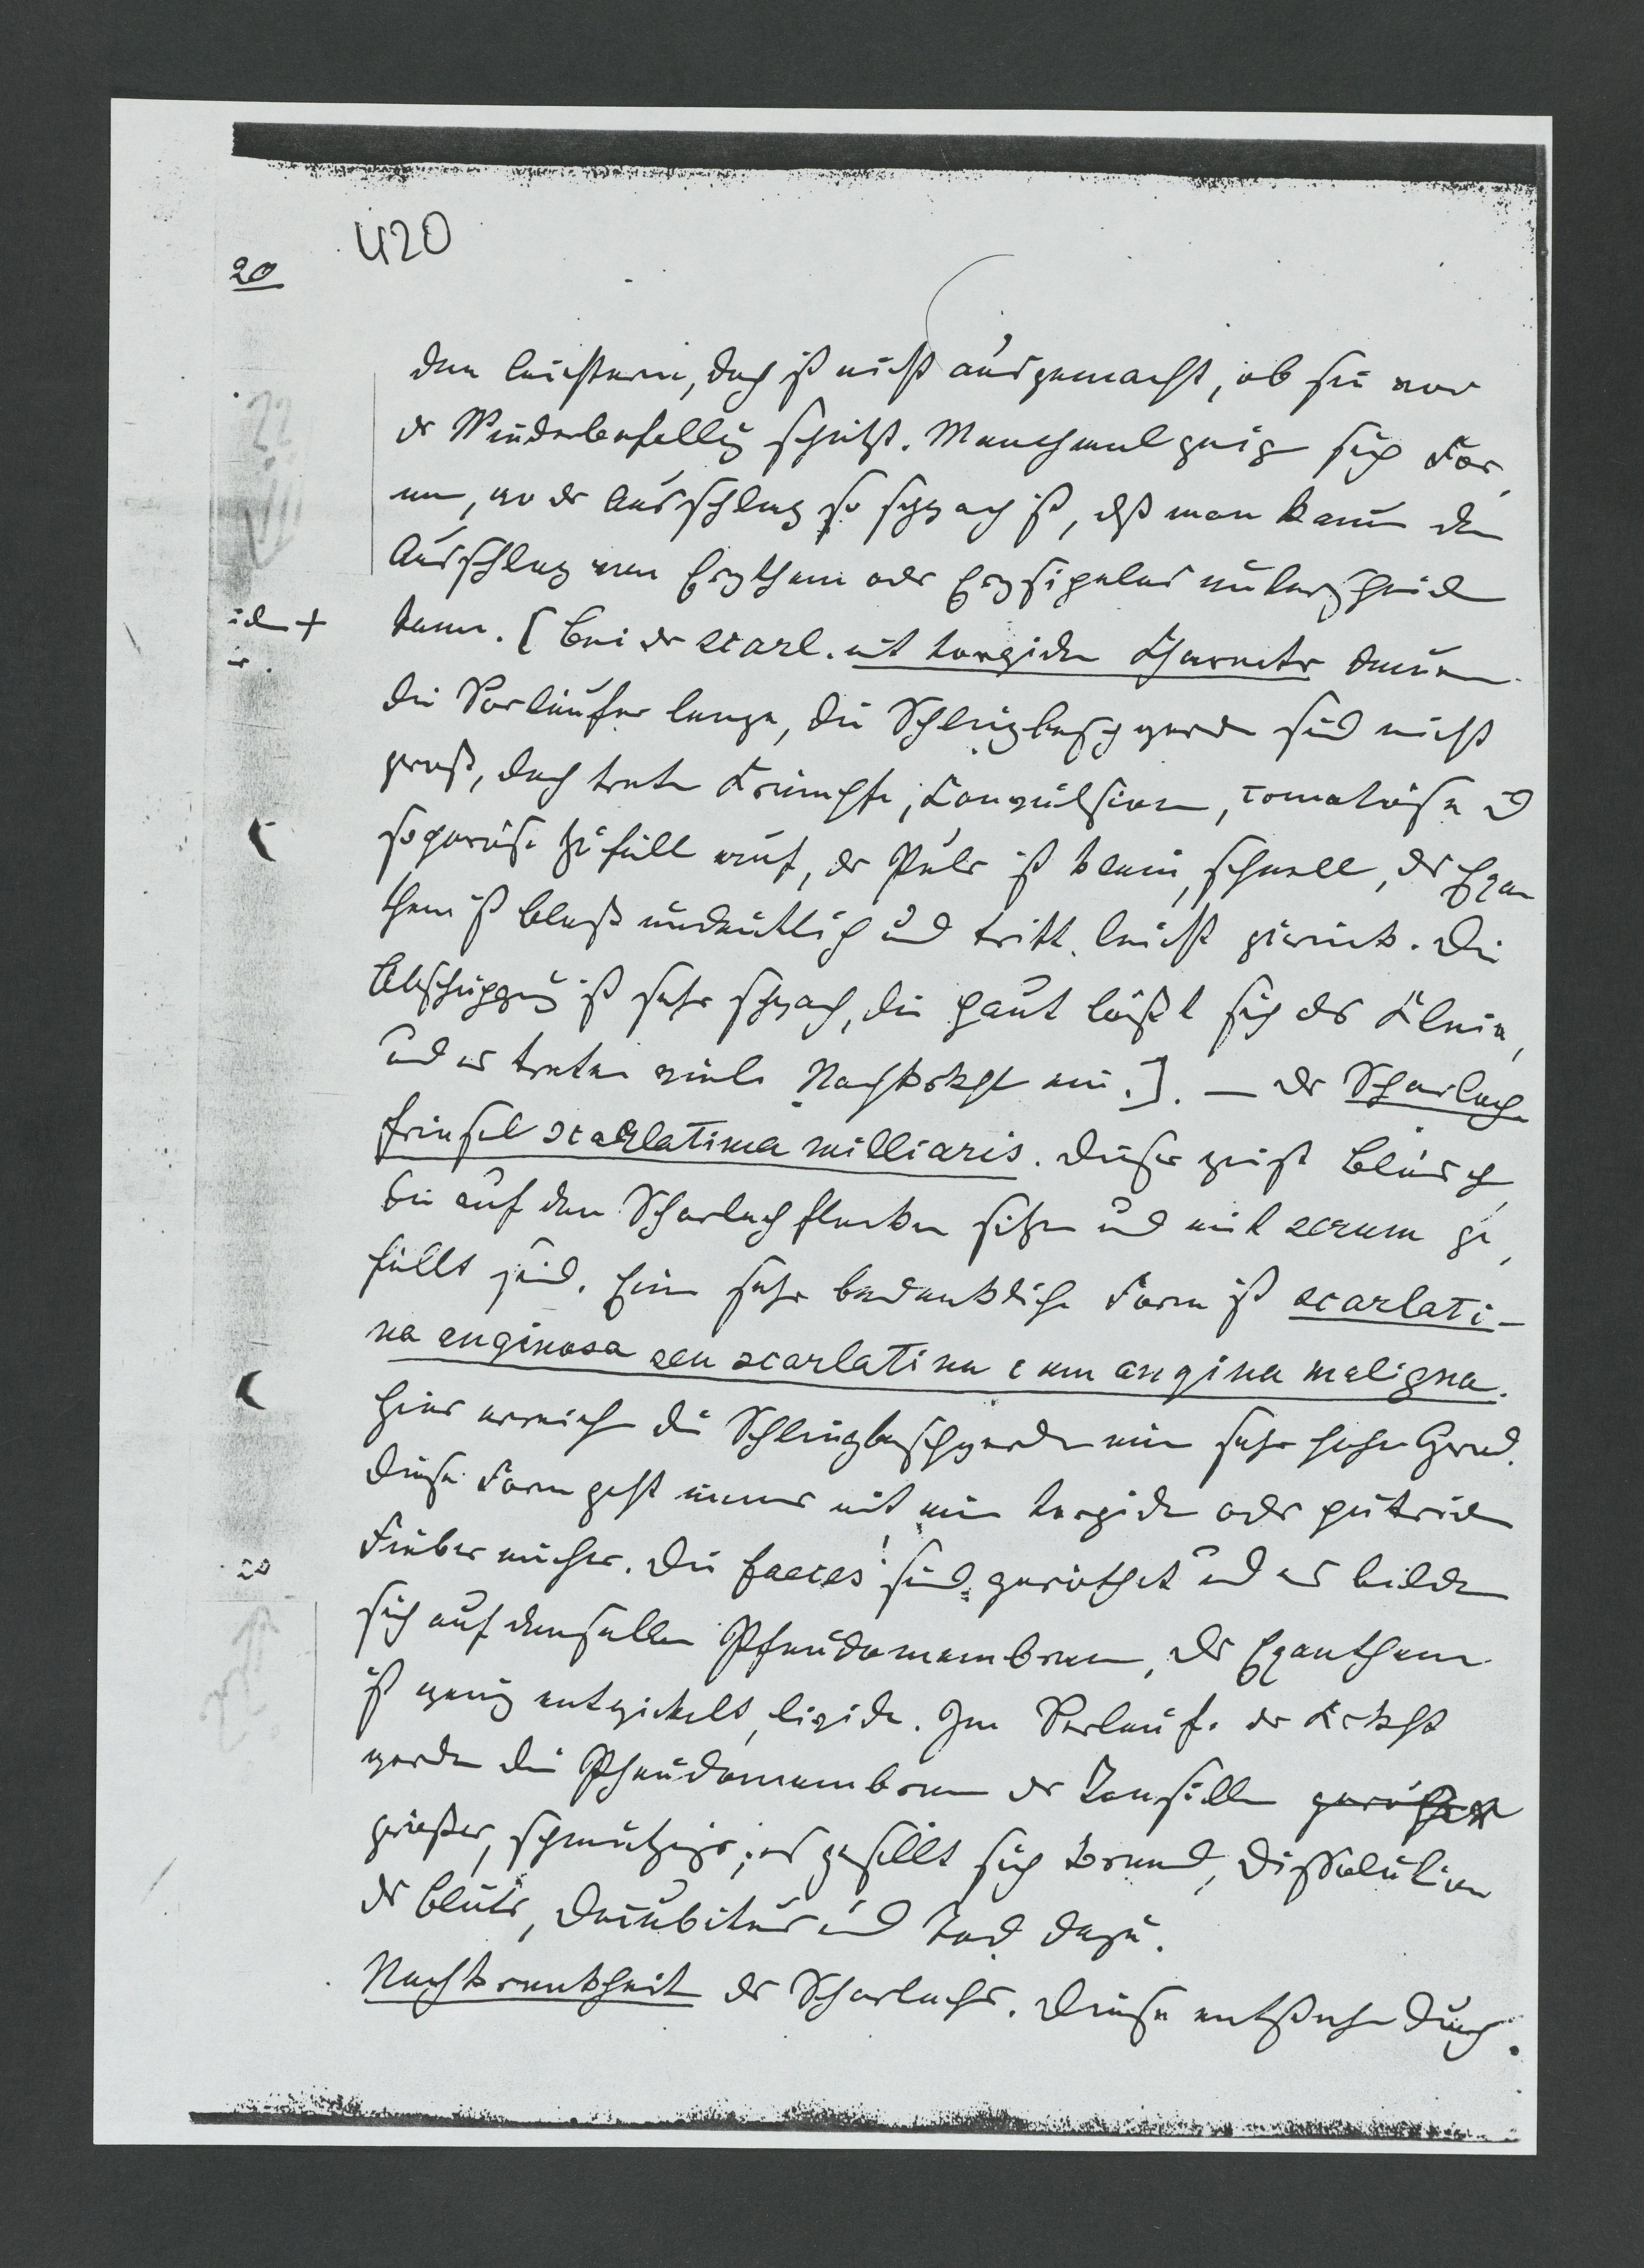 420
20
den leichtern, doch ist nicht ausgemacht, ob sie vor
dr Wiederbefallg schützt. Manchmal zeig sich For,
men, wo der Ausschlag so schwach ist, dß man kaum den
Ausschlag von Erythem oder Erysipelas unterscheid
kann. [Bei dr scarl. mit torpiden Charactr dauern
die Vorläufer lange, die Schlingbeschwerden sind nicht
groß, doch treten Krämpfe, Konvulsionen, comatöse u
soporöse Zufälle auf, dr Puls ist klein, schnell, ds Exan
them ist blass undeutlich und tritt leicht zurück. Die
Abschuppug ist sehr schwach, die Haut lößt sich als Kleie,
und es treten viele Nachkrkht ein.]. — Dr Scharlach
friesel scarlatina milliaris. Dieser zeigt Bläsch,
die auf den Scharlachflecken sitzen und mit serum ge,
füllt sind. Eine sehr bedenkliche Form ist scarlati-
na anginosa seu scarlatina cum angina maligna.
Hier erreichen die Schlingbeschwerden ein sehr hohen Grad.
Diese Form geht immer mit ein torpiden oder putriden
Fieber einher. Die faeces sind geröthet und es bilden
sich auf denselben Pseudomembranen, ds Exanthem
ist wenig entwickelt, livide. Im Verlaufe dr Krkht
werden die Pseudomembranen dr Tonsillen
größer, schmutziger, es gesellt sich Brand, Dissolution
ds Bluts, Decubitus und Tod dazu.
Nachkrankheiten ds Scharlachs. Diese entstehen durch